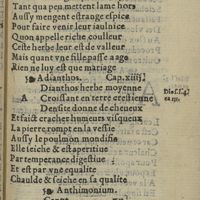 Tant que peu mettent lame hors
Aussy mengent estrange espice
Pour faire venir leur iaulnice
Quon appelle riche coulleur
Ceste herbe leur est de valleur
Mais quant vne fille passe aage
Rien ne luy est que mariage
Adianthos. Cap.xiiij.
Dianthos herbe moyenne
A Croissant en terre crestienne
Densite donne de cheueux
Et faict cracher humeurs visqueux
La pierre rompt en la vessie
Aussy le poulmon mondifie
Elle leiche & est aperitiue
Par temperance digestiue
Et est par vne equalite
Chaulde & seiche en sa qualite
Anthimonium.